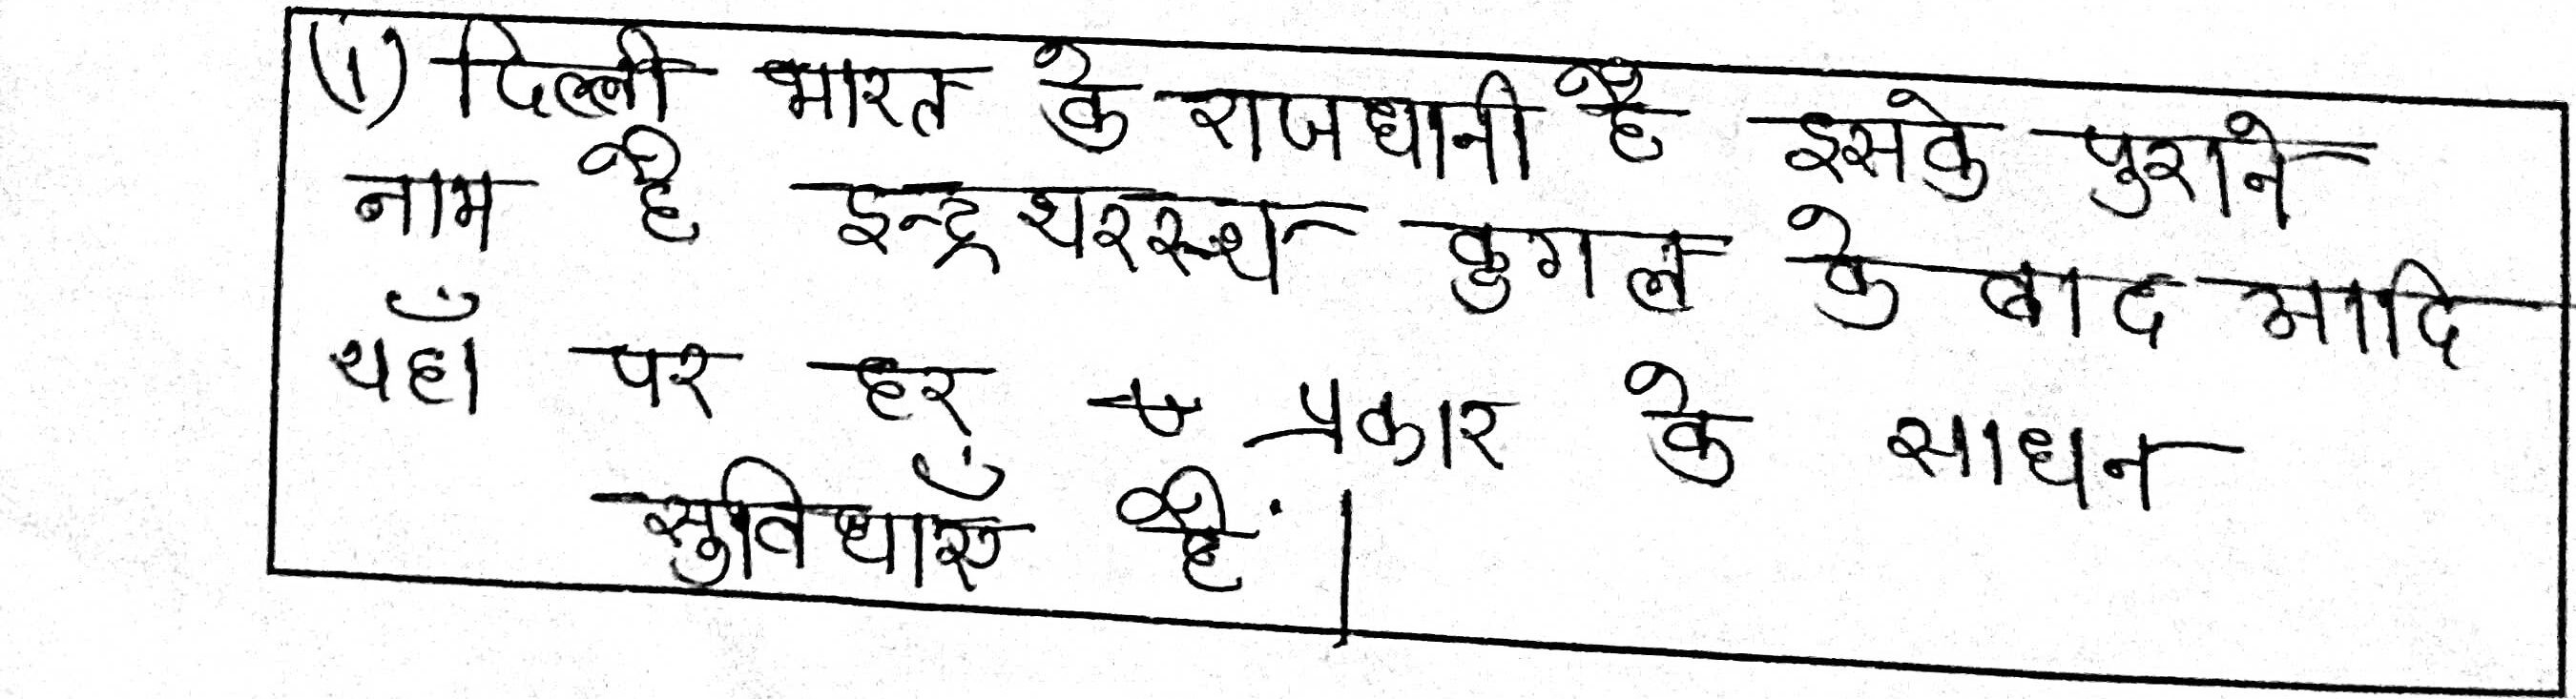 (1) दिल्ली भारत के राजधानी है इसके पुराने
नाम है इन्द्रथरस्थ कुगल के बाद आदि
यहाँ पर हर प्रकार के साधन
सुविधाएँ हैं।